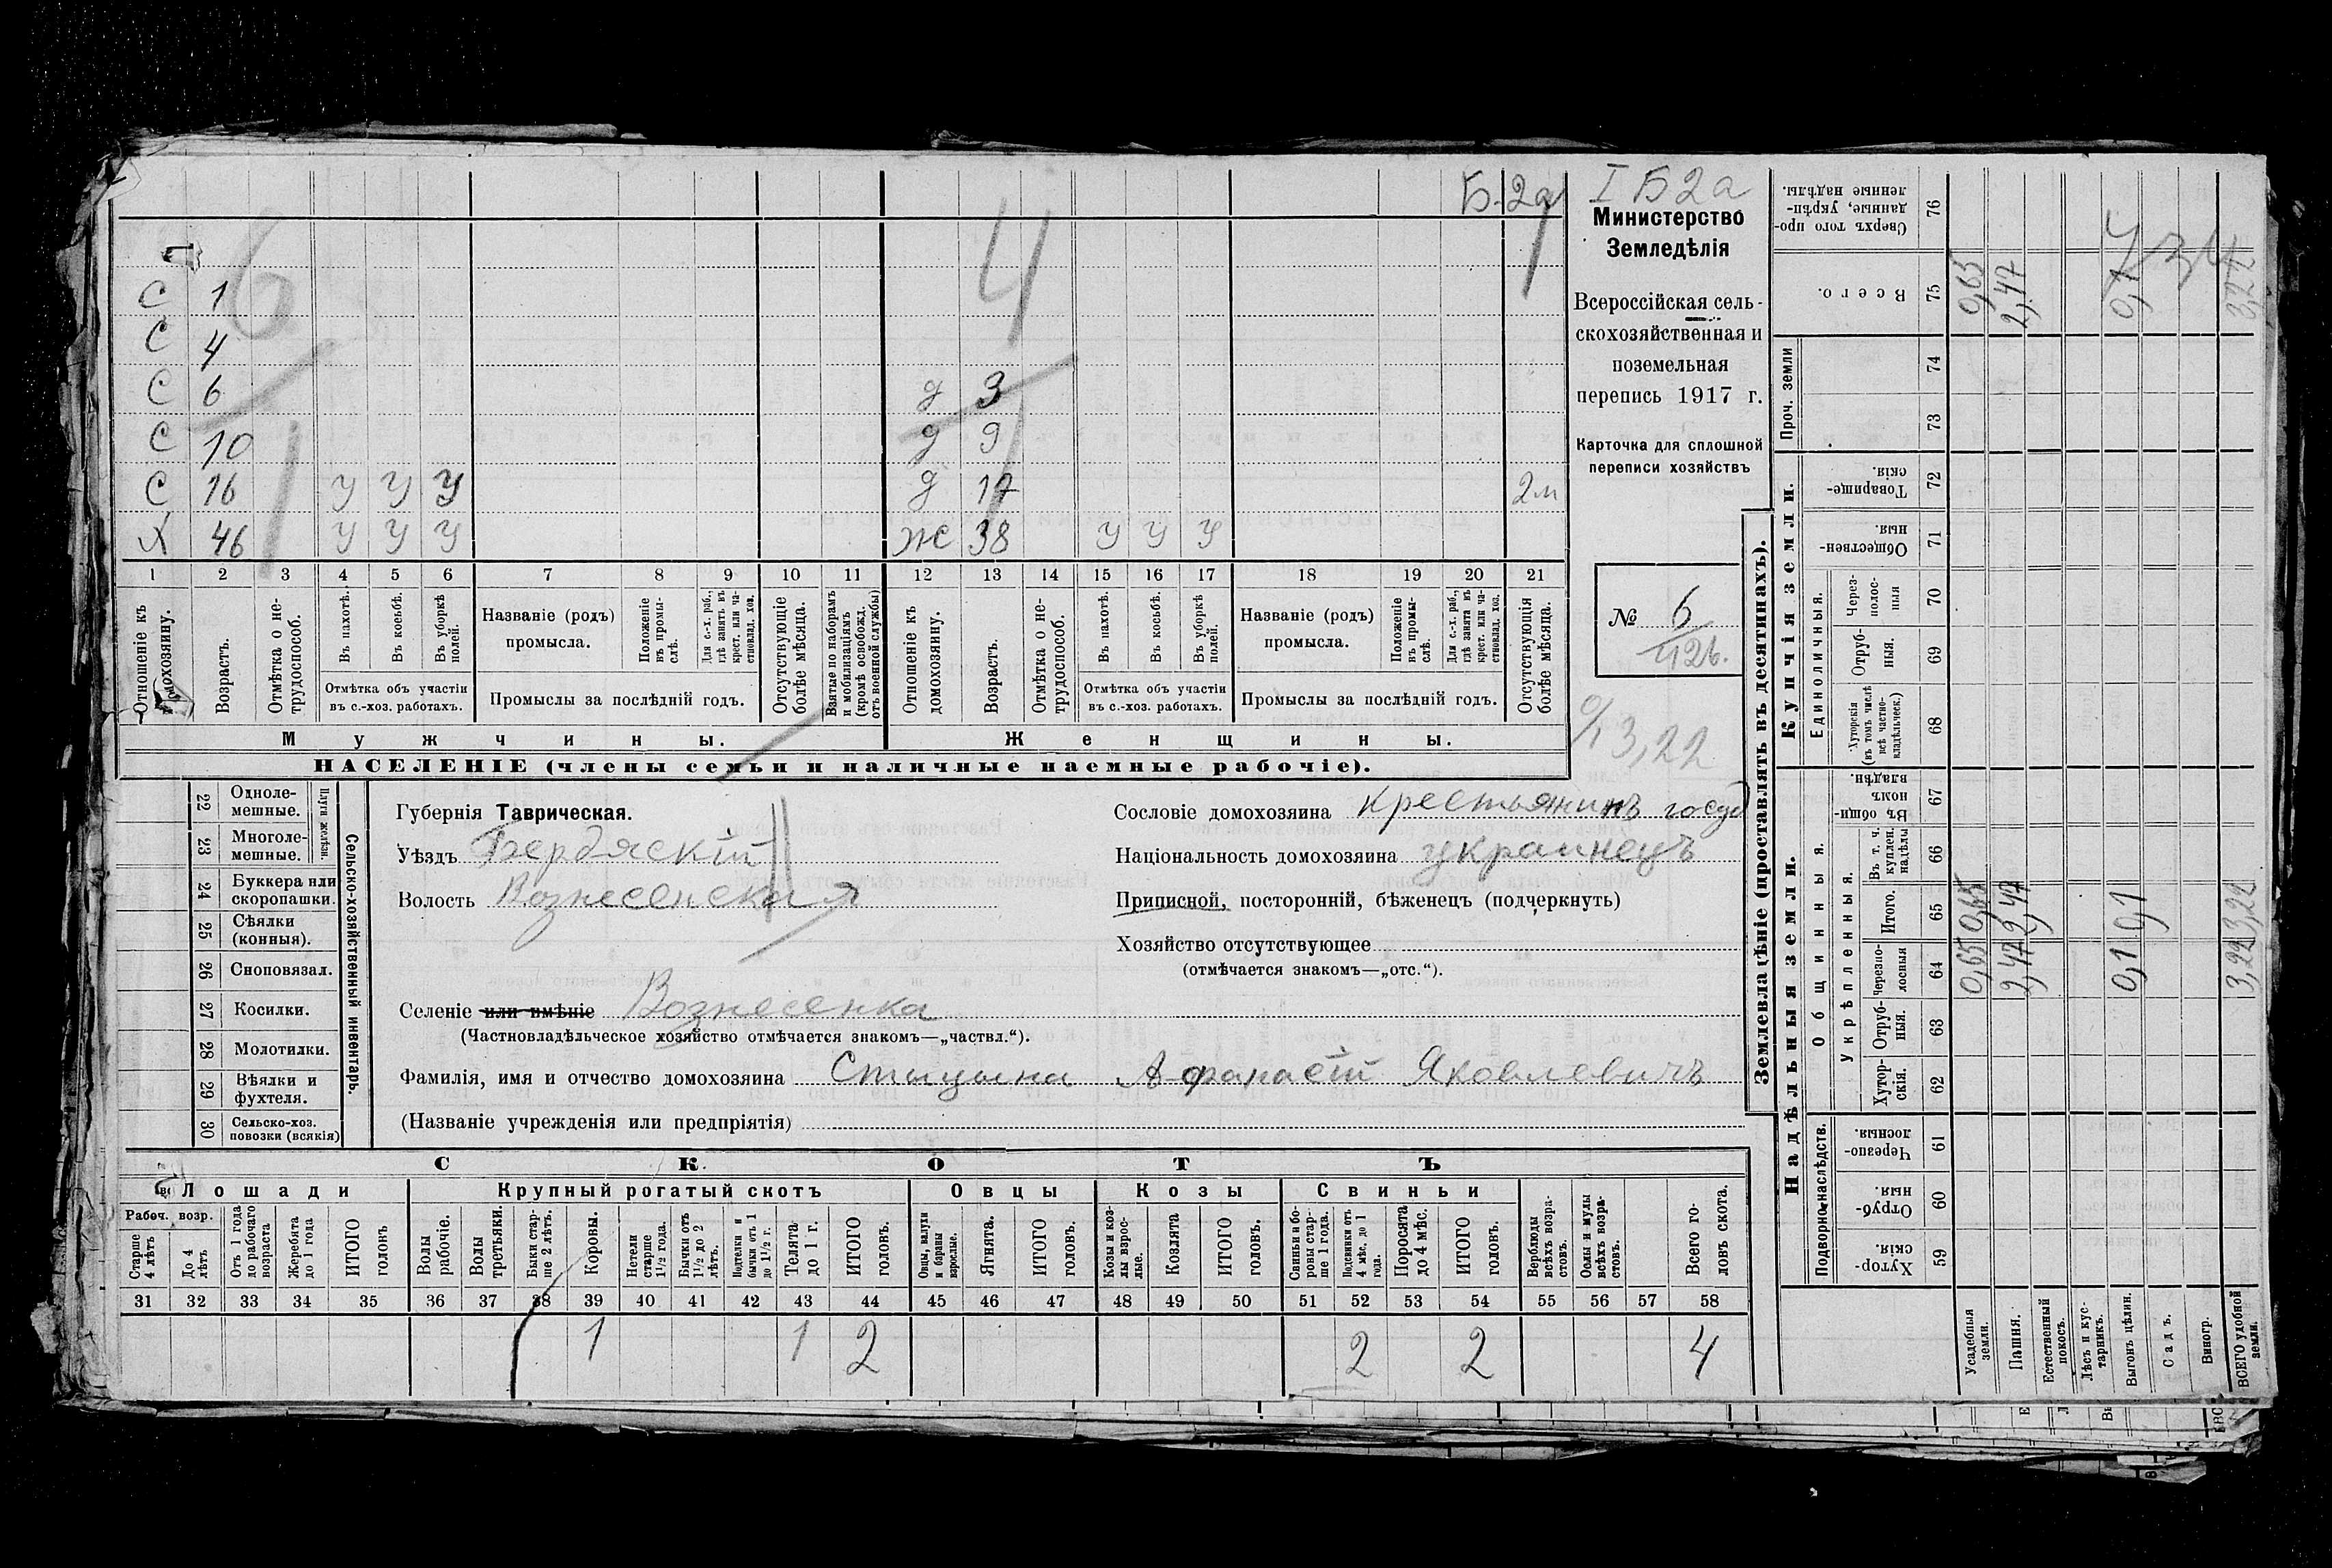 Б 2а
I Б2а
Министерство
Земледѣлія
Всероссійская сель-
скохозяйственная и
поземельная
перепись 1917 г.
Карточка для сплошной
переписи хозяйствъ
№ 6
3,22
6 4
С 1
С 4
С 6 д 3
С 10 д 9
С 16 У У У д 17 2м
Х 46 У У У Ж 38 У У У
1 2 3 4 5 6 7 8 9 10 11 12 13 14 15 16 17 18 19 20 21
Отношеніе къ домохозяину.
Возрастъ.
Отмѣтка о не-трудоспособ.
Въ пахотѣ.
Въ косьбѣ.
Въ уборкѣ полей.
Отмѣтка объ участіи въ с.-хоз. работахъ.
Названіе (родъ) промысла.
Положеніе въ промы-слѣ.
Для с.-х. раб., гдѣ занятъ въ крест. или ча-стновлад. хоз.
Промыслы за послѣдній годъ.
Отсутствующіе болѣе мѣсяца.
Взятые по наборамъ и мобилизаціямъ (кромѣ освобожд. отъ военной службы)
Отношеніе къ домохозяину.
Возрастъ.
Отмѣтка о не-трудоспособ.
Въ пахотѣ.
Въ косьбѣ.
Въ уборкѣ полей.
Отмѣтка объ участіи въ с.-хоз. работахъ.
Названіе (родъ) промысла.
Положеніе въ промы-слѣ.
Для с.-х. раб., гдѣ занята въ крест. или ча-стновлад. хоз.
Промыслы за послѣдній годъ.
Отсутствующія болѣе мѣсяца.
Мужчины. Женщины.
НАСЕЛЕНІЕ (члены семьи и наличные наемные рабочіе).
22 Одноле-мешные.
23 Многоле-мешные.
Плуги желѣзн.
24 Буккера или скоропашки.
25 Сѣялки (конныя).
26 Сноповязал.
27 Косилки.
28 Молотилки.
29 Вѣялки и фухтеля.
30 Сельско-хоз. повозки (всякія)
Сельско-хозяйственный инвентарь.
Губернія Таврическая.
Уѣздъ Бердяскій
Волость Вознесенская
Селеніе или имѣніе Вознесенка
(Частновладѣльческое хозяйство отмѣчается знакомъ—„частвл.“).
Фамилія, имя и отчество домохозяина Стицына Афанасій Яковлевичъ
(Названіе учрежденія или предпріятія)
Сословіе домохозяина крестьянинъ госуд
Національность домохозяина украинецъ
Приписной, посторонній, бѣженецъ (подчеркнуть)
Хозяйство отсутствующее
(отмѣчается знакомъ—„отс.“).
СКОТЪ
Лошади Крупный рогатый скотъ Овцы Козы Свиньи
Рабоч. возр.
Старше 4 лѣтъ
До 4 лѣтъ
Отъ 1 года до рабочаго возраста
Жеребята до 1 года
ИТОГО головъ
Волы рабочіе.
Волы третьяки.
Быки стар-ше 2 лѣтъ.
Коровы.
Нетели старше 1½ года.
Бычки отъ 1½ до 2 лѣтъ.
Подтелки и бычки отъ 1 до 1½ г.
Телята до 1 г.
ИТОГО головъ.
Овцы, валухи и бараны взрослые.
Ягнята.
ИТОГО головъ.
Козы и коз-лы взрос-лые.
Козлята
ИТОГО головъ.
Свиньи и бо-ровы стар-ше 1 года.
Подсвинки отъ 4 мѣс. до 1 года.
Поросята до 4 мѣс.
ИТОГО головъ.
Верблюды всѣхъ возра-стовъ.
Ослы и мулы всѣхъ возра-стовъ.
Всего го-ловъ скота.
31 32 33 34 35 36 37 38 39 40 41 42 43 44 45 46 47 48 49 50 51 52 53 54 55 56 57 58
1 1 2 2 2 4
Землевладѣніе (проставлять въ десятинахъ).
Надѣльныя земли. Купчія земли. Проч. земли
Подворно-наслѣдств. Общинныя. Укрѣпленныя. Единоличныя.
59 Хутор-скія.
60 Отруб-ныя.
61 Черезпо-лосныя.
62 Хутор-скія.
63 Отруб-ныя.
64 Черезпо-лосныя
65 Итого.
66 Въ т. ч. куплен. надѣлы
67 Въ общи-нномъ владѣн.
68 Хуторскія (въ томъ числѣ всѣ частно-владѣльческ.)
69 Отруб-ныя.
70 Через-полос-ныя
71 Обществен-ныя.
72 Товарище-скія.
73
74
75 Всего.
76 Сверхъ того про-данные, укрѣп-ленные надѣлы.
Усадебныя земли. 0,65 0,65 0,65
Пашня. 2,47 2,47 2,47
Естественный покосъ.
Лѣсъ и кус-тарникъ.
Выгонъ цѣлин. 0,1 0,1 0,1
Садъ.
Виногр.
ВСЕГО удобной земли. 3,22 3,22 3,22